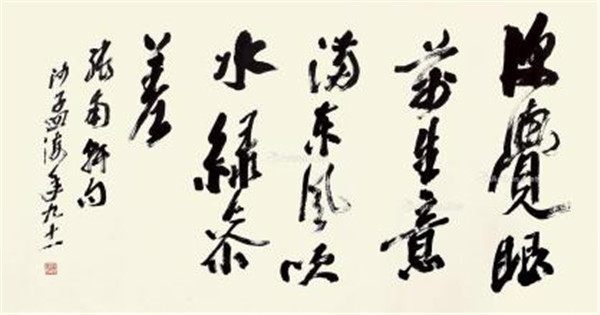 便覺眼
前生意
滿東風吹
水綠參
差
張南軒句
沙孟海年九十一